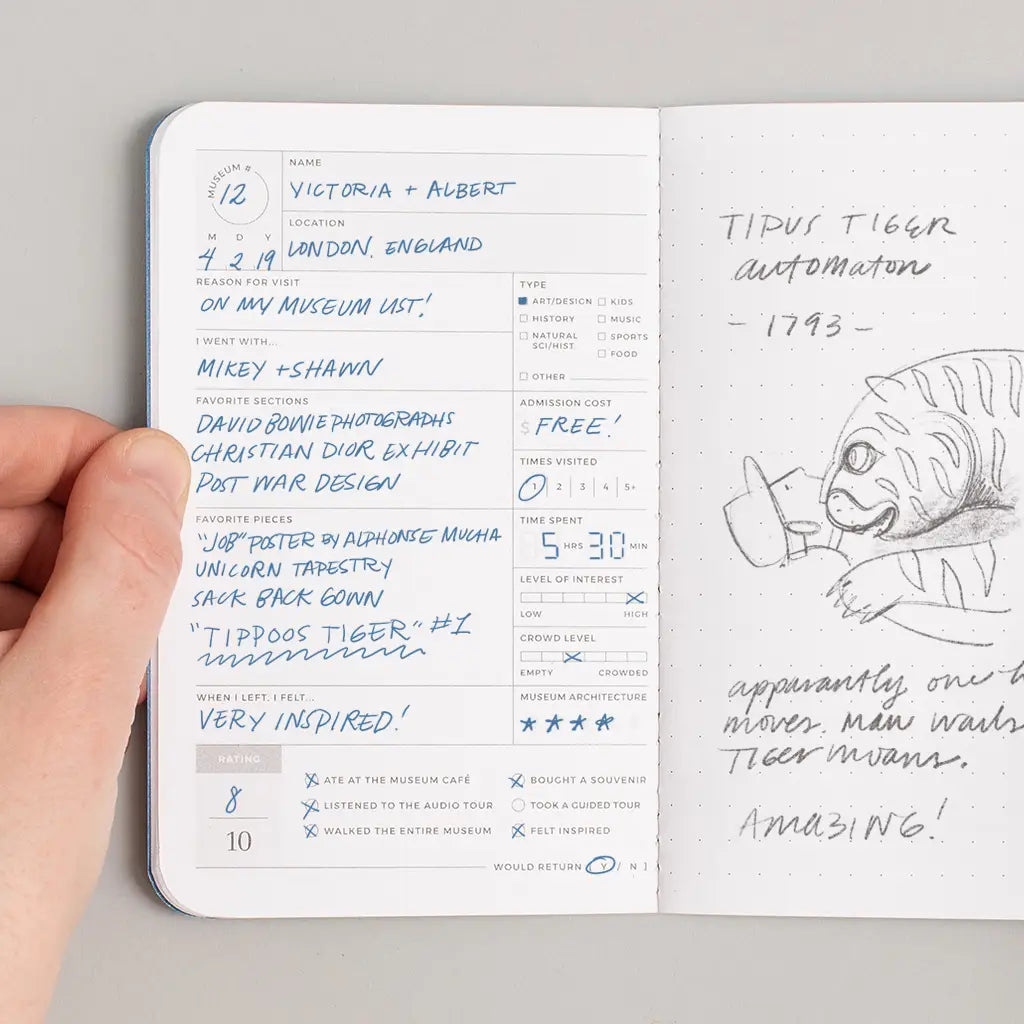 MUSEUM #
12
M D Y
4 2 19
NAME
VICTORIA + ALBERT
LOCATION
LONDON, ENGLAND
REASON FOR VISIT
ON MY MUSEUM LIST!
I WENT WITH...
MIKEY + SHAWN
FAVORITE SECTIONS
DAVID BOWIE PHOTOGRAPHS
CHRISTIAN DIOR EXHIBIT
POST WAR DESIGN
FAVORITE PIECES
"JOB" POSTER BY ALPHONSE MUCHA
UNICORN TAPESTRY
SACK BACK GOWN
"TIPPOOS TIGER" #1
WHEN I LEFT, I FELT...
VERY INSPIRED!
TYPE
ART/DESIGN KIDS
HISTORY MUSIC
NATURAL SPORTS
SCI/HIST
FOOD
OTHER
ADMISSION COST
$ FREE!
TIMES VISITED
1 2 3 4 5+
TIME SPENT
5 HRS 30 MIN
LEVEL OF INTEREST
LOW HIGH
CROWD LEVEL
EMPTY CROWDED
MUSEUM ARCHITECTURE
RATING
8
10
ATE AT THE MUSEUM CAFÉ BOUGHT A SOUVENIR
LISTENED TO THE AUDIO TOUR TOOK A GUIDED TOUR
WALKED THE ENTIRE MUSEUM FELT INSPIRED
WOULD RETURN [ Y / N ]
TIPUS TIGER
automaton
- 1793 -
apparantly one
moves. Man wails
Tiger moans.
AMAZING!